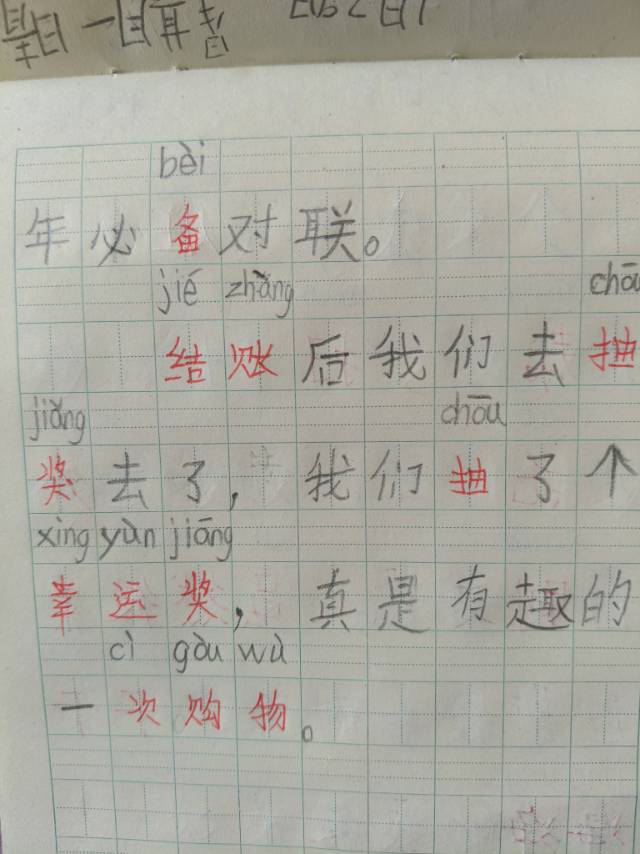 bèi
年必备对联。
jié zhàng chōu
结账后我们去抽
jiǎng chōu
奖去了，我们抽了个
xìng yùn jiāng
幸运奖，真是有趣的
cì gòu wù
一次购物。